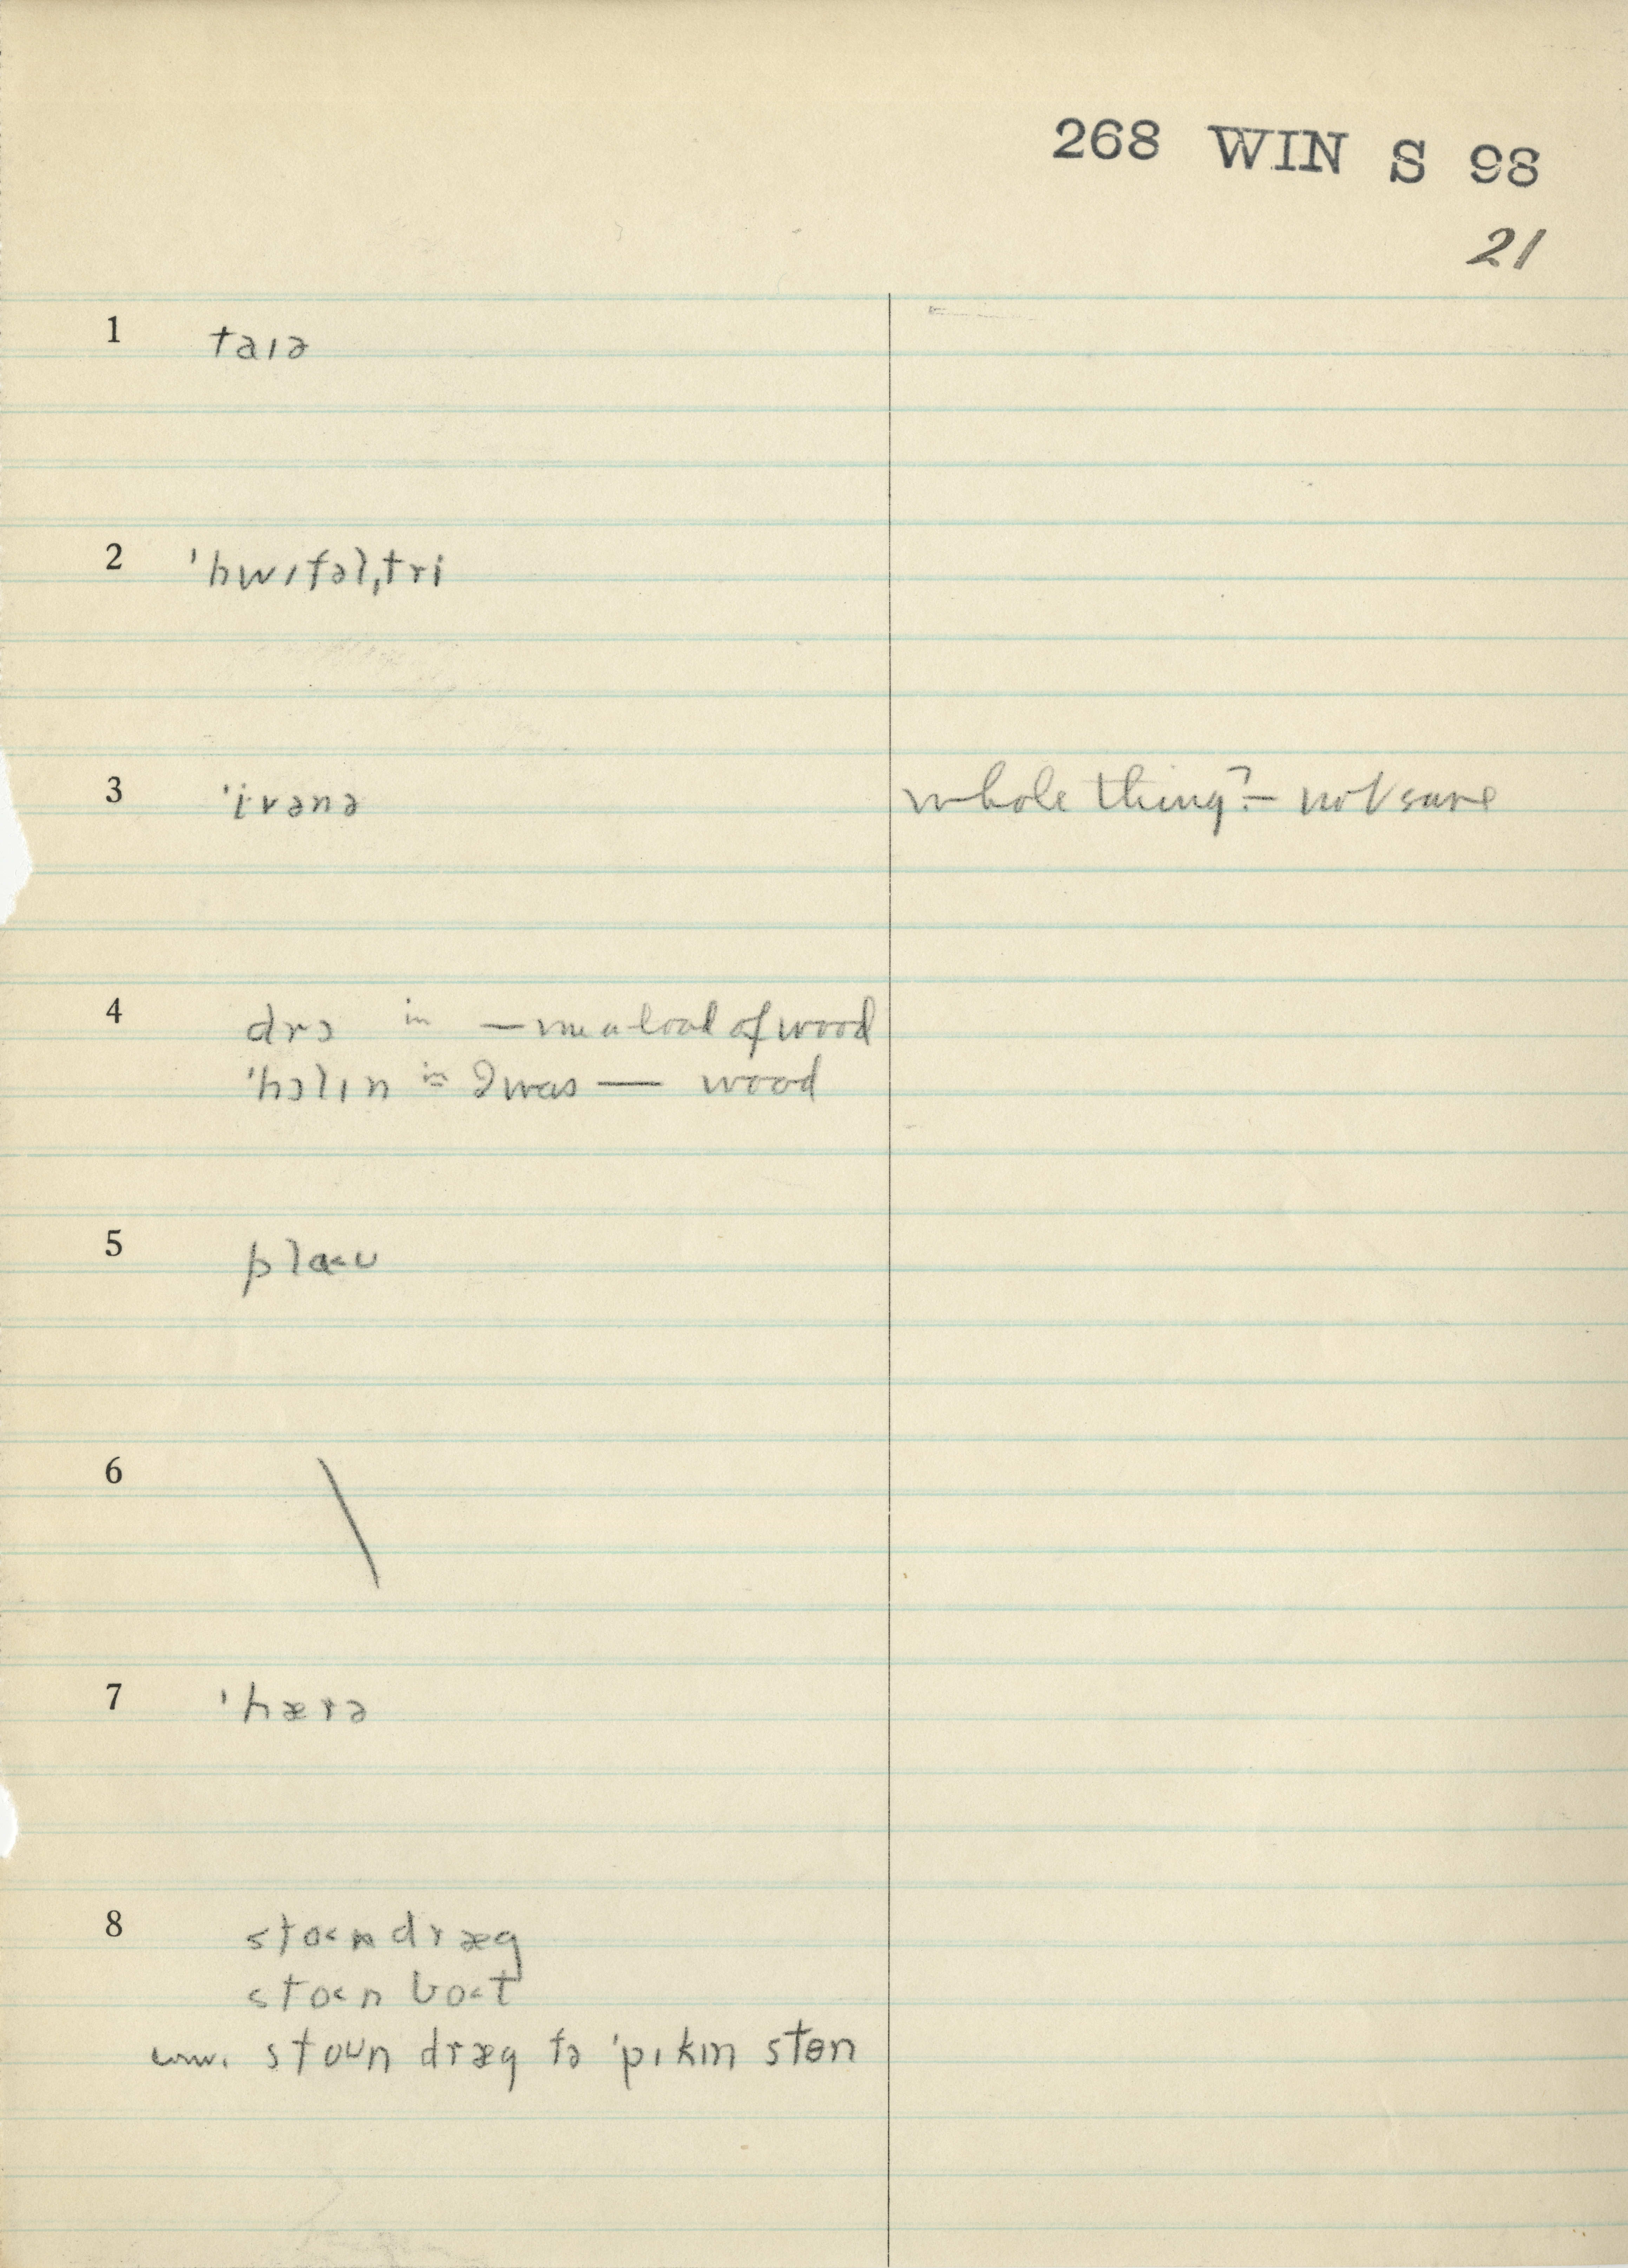 268 WIN S 98
21
1 taɪə
2 ˈhwɪfəlˌtri
3 ˈivənə whole thing? – not sure
4 drɔ in — me a load of wood
ˈhɔlɪn in I was — wood
5 pla<ʊ
6 \
7 ˈhærə
8 sto<n dræg
sto<n bo<t
c.w. stoun dræg fə ˈpɪkɪn stɵn